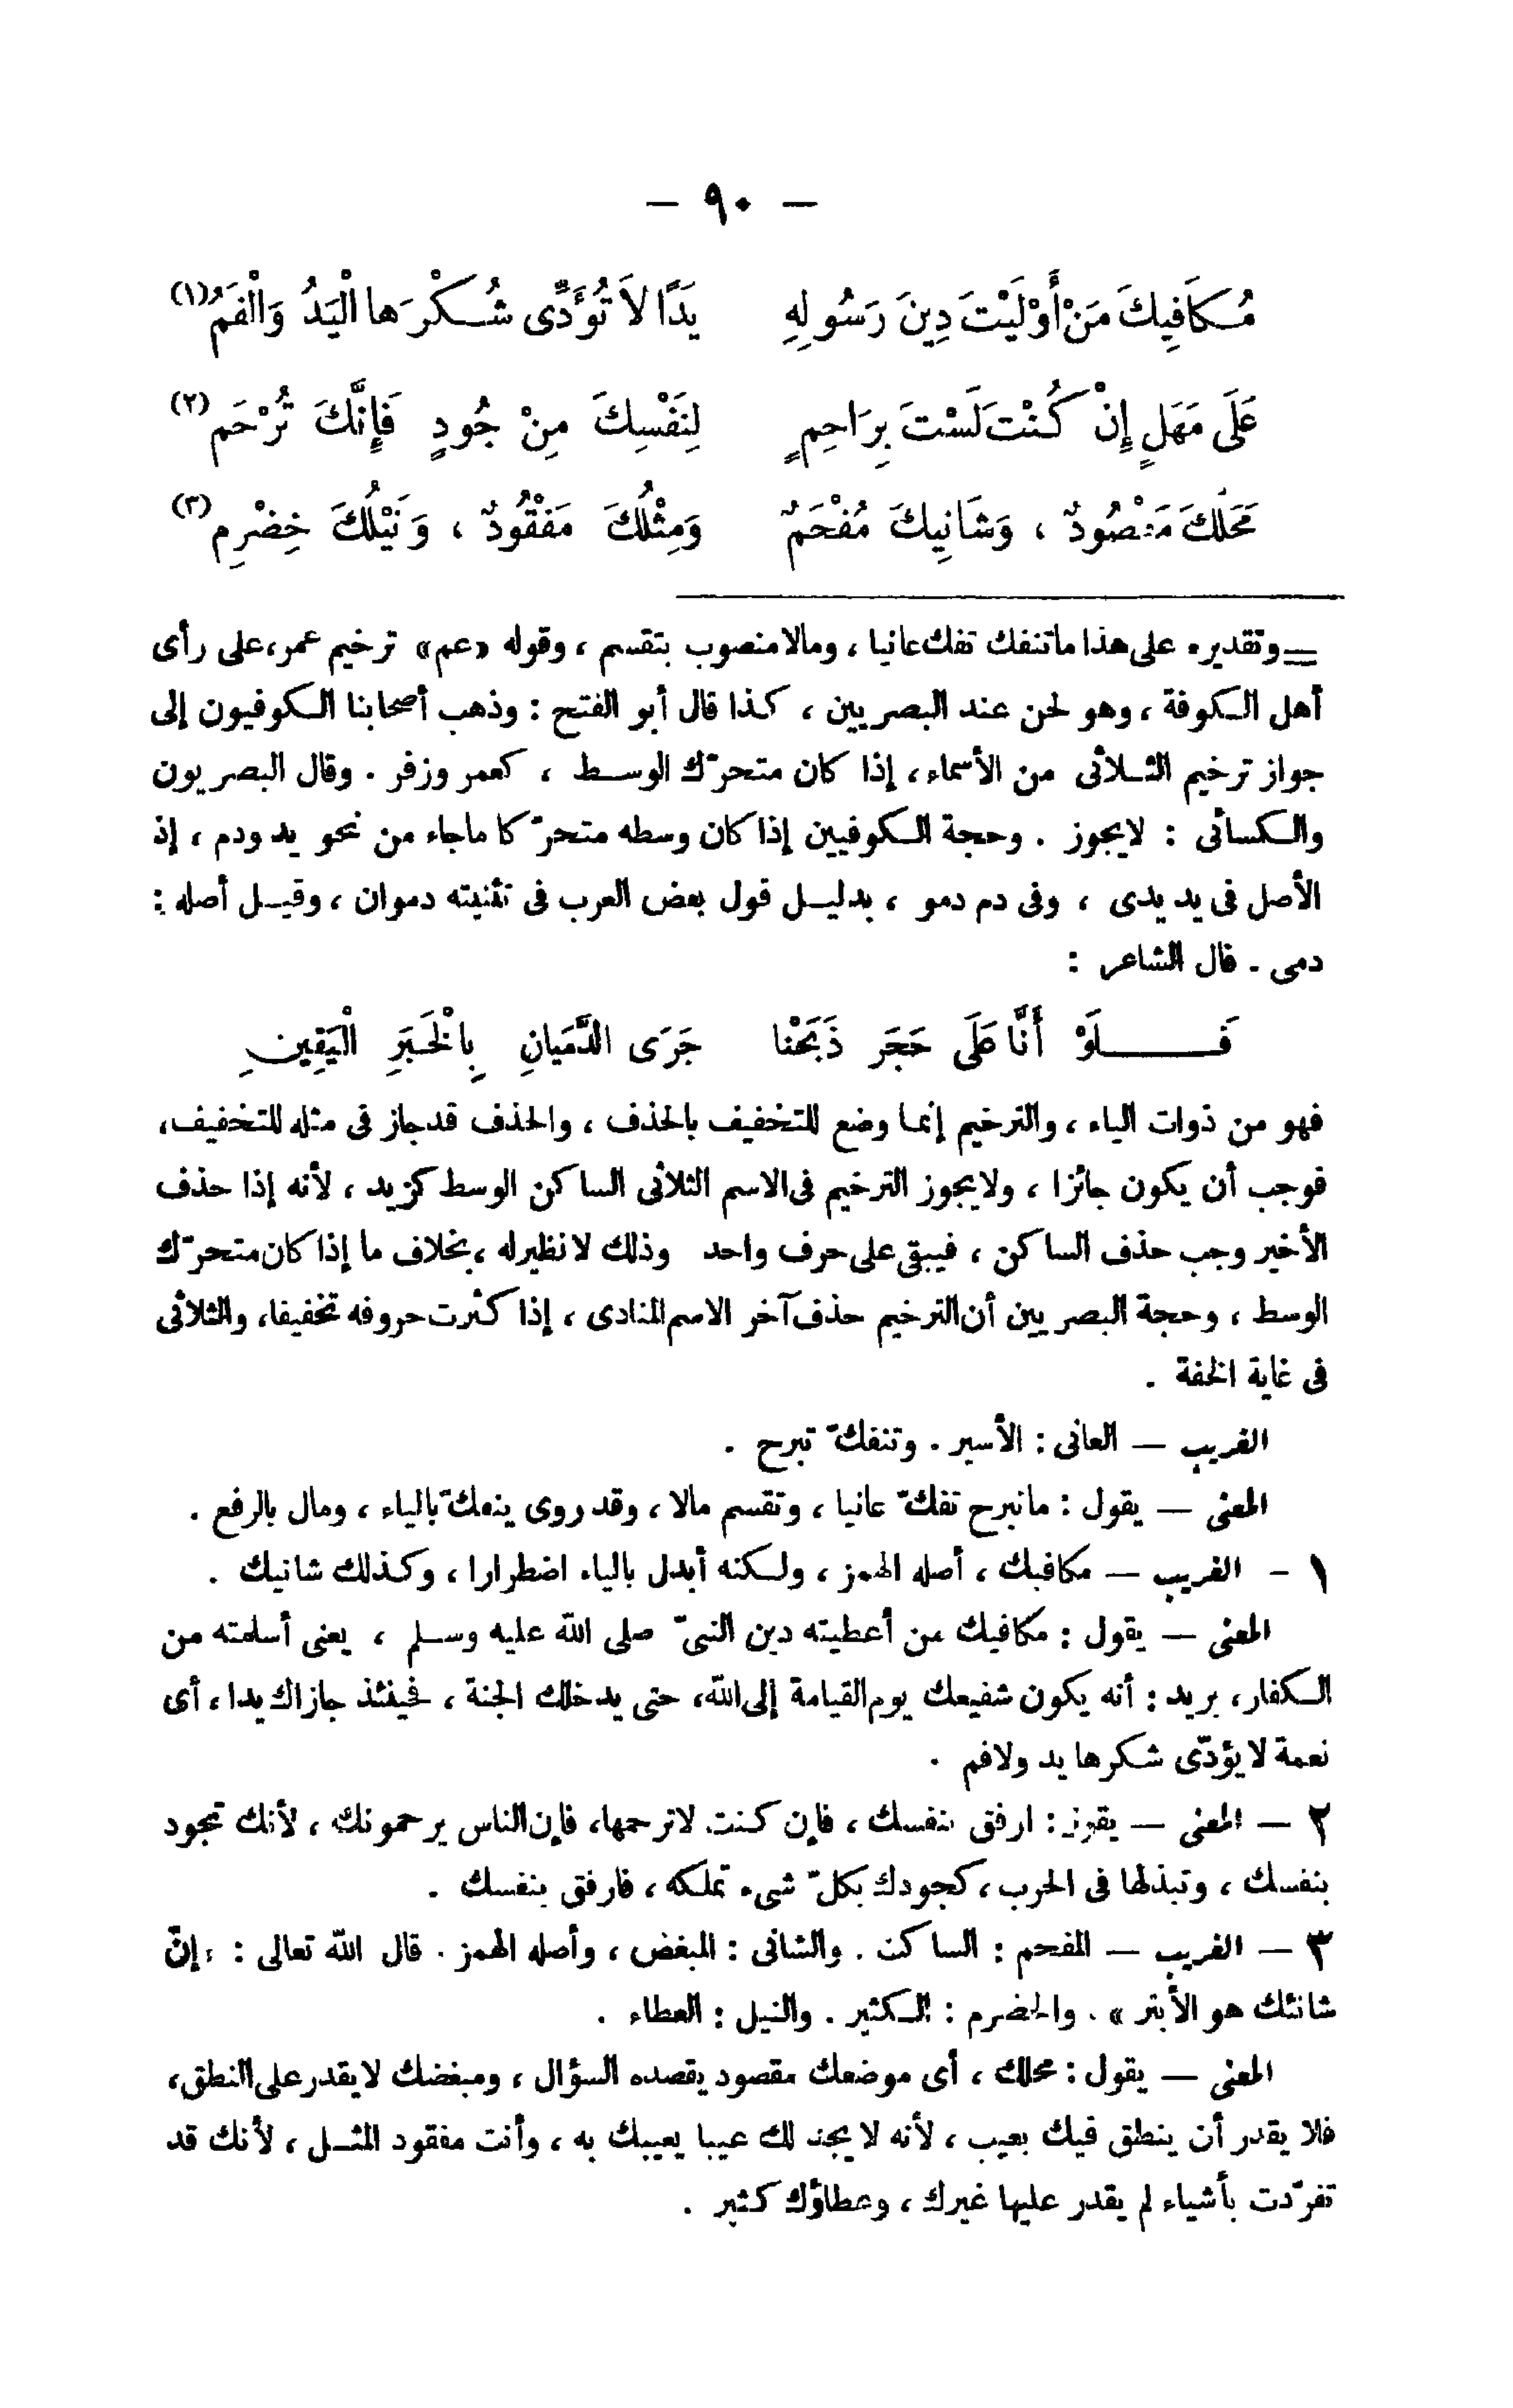 — ٩٠ —
مُكَافِيكَ مَنْ أَوْلَيْتَ دِينَ رَسُولِهِ يَدًا لاَ تُؤَدِّى شُكْرَها الْيَدُ وَالْفَمُ (١)
عَلَى مَهَلٍ إِنْ كُنْتَ لَسْتَ بِرَاحِمٍ لِنَفْسِكَ مِنْ جُودٍ فَإِنَّكَ تُرْحَم (٢)
مَحَلُّكَ مَقْصُودٌ ، وَشَانِيكَ مُفْحَمٌ وَمِثْلُكَ مَفْقُودٌ ، وَنَيْلُكَ خِضْرِم (٣)
= وتقديره على هذا ماتنفك تفك عانيا ، ومالا منصوب بتقسم ، وقوله «عم» ترخيم عمر، على رأى
أهل الكوفة ، وهو لحن عند البصريين ، كذا قال أبو الفتح : وذهب أصحابنا الكوفيون إلى
جواز ترخيم الثلاثى من الأسماء ، إذا كان متحرّك الوسط ، كعمر وزفر . وقال البصريون
والكسائى : لايجوز . وحجة الكوفيين إذا كان وسطه متحرّكا ماجاء من نحو يد ودم ، إذ
الأصل فى يد يدى ، وفى دم دمو ، بدليل قول بعض العرب فى تثنيته دموان ، وقيل أصله :
دمى . قال الشاعر :
فَلَوْ أَنَّا عَلَى حَجَر ذَبَحْنا جَرَى الدَّمَيانِ بِالْخَبَرِ الْيَقِينِ
فهو من ذوات الياء ، والترخيم إنما وضع للتخفيف بالحذف ، والحذف قد جاز فى مثله للتخفيف،
فوجب أن يكون جائزا ، ولايجوز الترخيم فى الاسم الثلاثى الساكن الوسط كزيد ، لأنه إذا حذف
الأخير وجب حذف الساكن ، فيبقى على حرف واحد وذلك لا نظيرله ، بخلاف ما إذا كان متحرّك
الوسط ، وحجة البصريين أن الترخيم حذف آخر الاسم المنادى ، إذا كثرت حروفه تخفيفا، والثلاثى
فى غاية الخفة .
الغريب — العانى : الأسير . وتنفكّ تبرح .
المعنى — يقول : ماتبرح تفكّ عانيا ، وتقسم مالا ، وقد روى ينفكّ بالياء ، ومال بالرفع .
١ - الغريب — مكافيك ، أصله الهمز ، ولكنه أبدل بالياء اضطرارا ، وكذلك شانيك .
المعنى — يقول : مكافيك من أعطيته دين النبىّ صلى الله عليه وسلم ، يعنى أسلمته من
الكفار، يريد : أنه يكون شفيعك يوم القيامة إلى الله، حتى يدخلك الجنة ، فحينئذ جازاك يدا ، أى
نعمة لا يؤدّى شكرها يد ولافم .
٢ — المعنى — يقول : ارفق بنفسك ، فإن كنت لاترحمها، فإن الناس يرحمونك ، لأنك تجود
بنفسك ، وتبذلها فى الحرب ، كجودك بكلّ شىء تملكه ، فارفق بنفسك .
٣ — الغريب — المفحم : الساكت . والشانى : المبغض ، وأصله الهمز . قال الله تعالى : «إنّ
شانئك هو الأبتر» . والخضرم : الكثير . والنيل : العطاء .
المعنى — يقول : محلك ، أى موضعك مقصود يقصده السؤال ، ومبغضك لايقدر على النطق،
فلا يقدر أن ينطق فيك بعيب ، لأنه لا يجد لك عيبا يعيبك به ، وأنت مفقود المثل ، لأنك قد
تفرّدت بأشياء لم يقدر عليها غيرك ، وعطاؤك كثير .